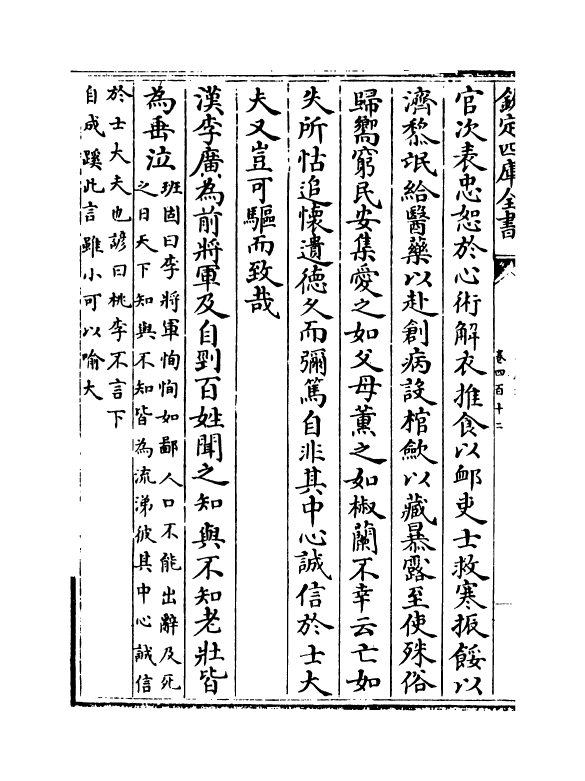 欽定四庫全書
卷四百十二
官次表忠恕於心術解衣推食以䘏吏士救寒振餒以
濟黎氓給醫藥以赴創病設棺斂以藏暴露至使殊俗
歸嚮窮民安集愛之如父母薫之如椒蘭不幸云亡如
失所怙追懷遺德久而彌篤自非其中心誠信於士大
夫又豈可驅而致哉
漢李廣為前將軍及自剄百姓聞之知與不知老壯皆
為垂泣
班固曰李將軍恂恂如鄙人口不能出辭及死
之日天下知與不知皆為流涕彼其中心誠信
於士大夫也諺曰桃李不言下
自成蹊此言雖小可以喻大